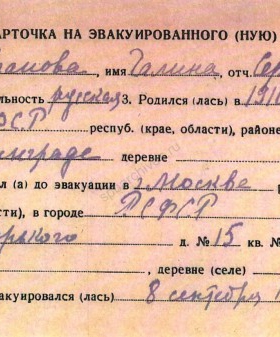 АРТОЧКА НА ЭВАКУИРОВАННОГО (НУЮ)
, имя Галина, отч. Сер
льность русская 3. Родился (лась) в 191
республ. (крае, области), районе
нграде деревне
л (а) до эвакуации в Москве
сти), в городе РСФСР
рького д. № 15 кв. №
, деревне (селе)
акуировался (лась) 8 сентября 1